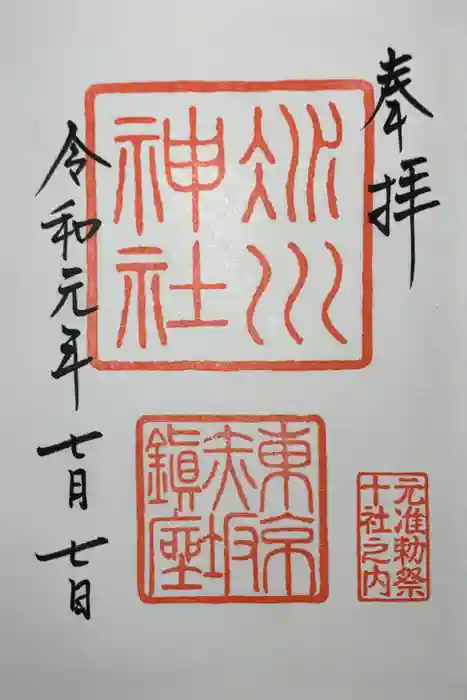 奉拝
氷川
神社
東京
赤坂
鎮座
元准勅祭
十社之内
令和元年 七月七日